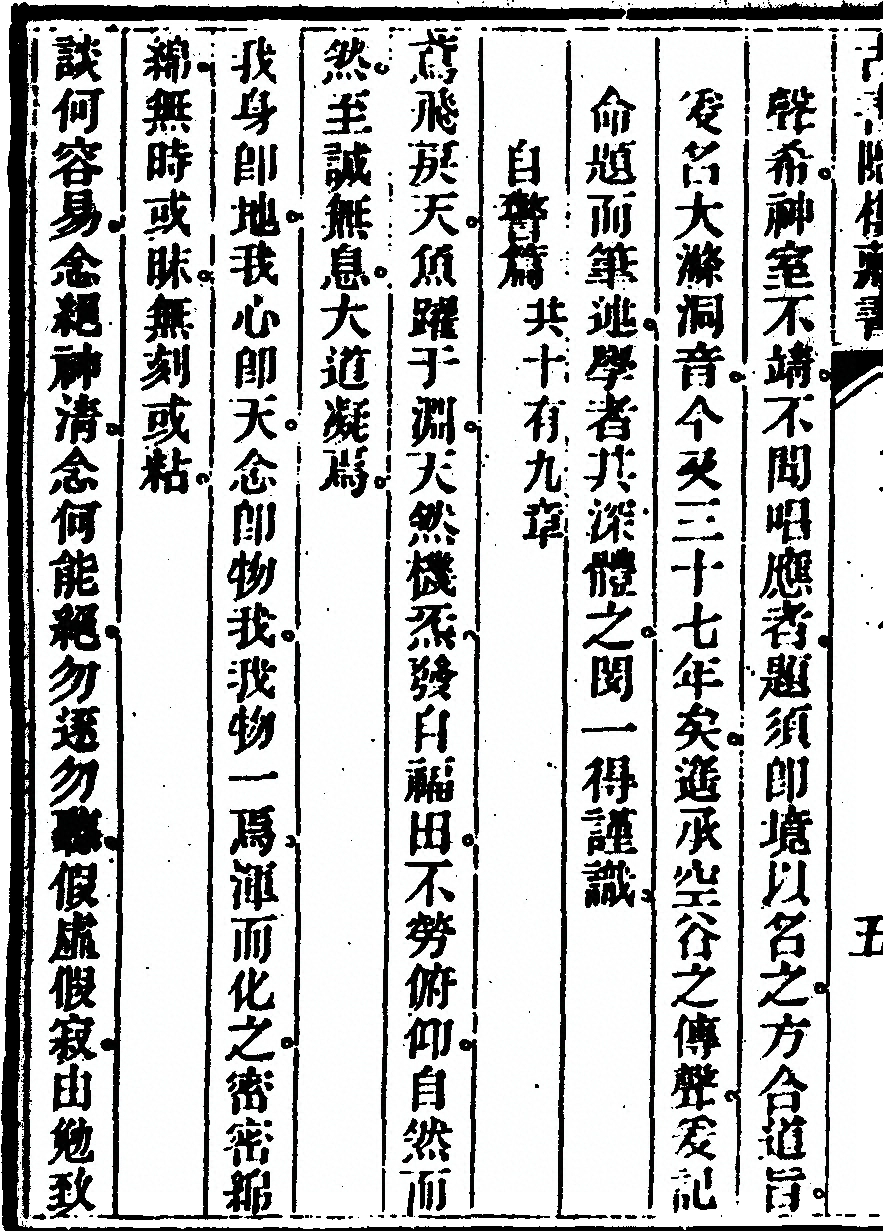 古書隱樓藏書 五
聲希。神室不靖。不聞唱應者。題須即境以名之。方合道旨。
爰名大滌洞音。今又三十七年矣。遙承空谷之傳聲。爰記
命題而筆述。學者共深體之。閔一得謹識。
自警篇 共十有九章
鳶飛戾天。魚躍于淵。天然機炁。發自福田。不勞俯仰。自然而
然。至誠無息。大道凝焉。
我身即地。我心即天。念即物我。我物一焉。渾而化之。密密綿
綿。無時或昧。無刻或粘。
談何容易。念絕神清。念何能絕。勿逐勿。假虛假寂。由勉致